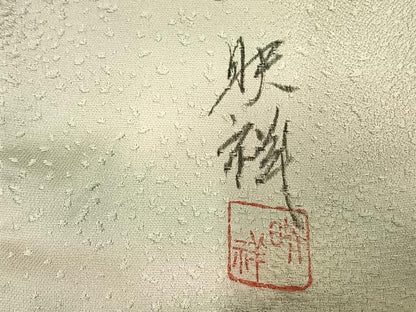 映祥
映祥